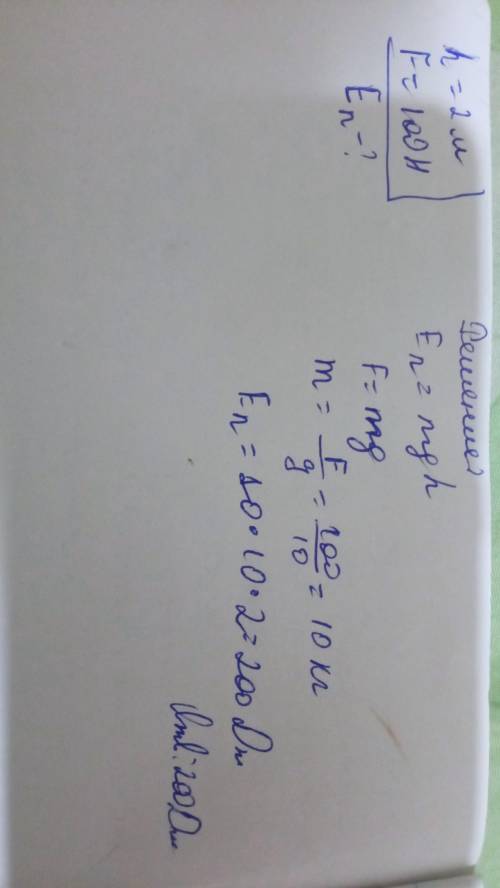 h = 2 м
F = 100 Н
Eп - ?
Решение:
Eп = mgh
F = mg
m = F/g = 100/10 = 10 кг
Eп = 10 · 10 · 2 = 200 Дж
Отв: 200 Дж